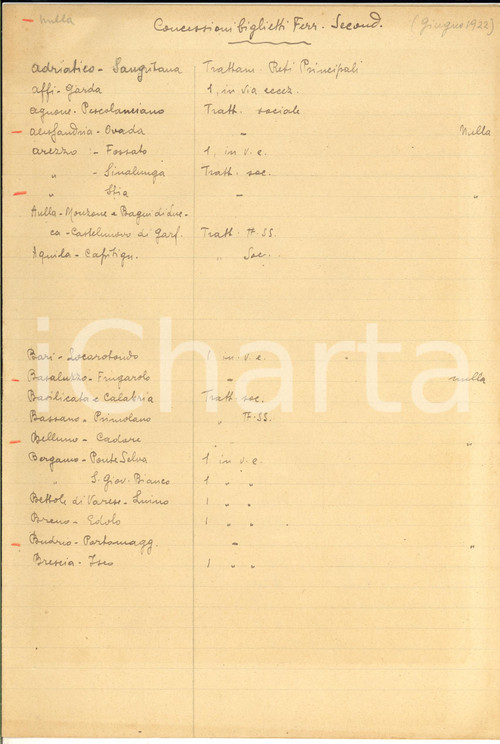 – nulla
Concessioni biglietti Ferr. Second. (Giugno 1922)
Adriatico - Sangritana Trattam. Reti Principali
Affi - Garda 1, in via eccez.
Agnone - Pescolanciano Tratt. sociale
– Alessandria - Ovada – Nulla
Arezzo :- Fossato 1, in v. e.
„ - Sinalunga Tratt. soc.
– „ Stia – „
Aulla - Monzone e Bagni di Luc-
ca - Castelnuovo di Garf. Tratt. FF. SS.
Aquila - Capitign. „ Soc.
iCharta
Bari - Locorotondo 1 in v. e.
– Basaluzzo - Frugarolo – nulla
Basilicata e Calabria Tratt. soc.
Bassano - Primolano „ FF. SS.
– Belluno - Cadore – „
Bergamo - Ponte Selva 1 in v. e.
„ S. Giov. Bianco 1 „ „
Bettole di Varese - Luino 1 „ „
Breno - Edolo 1 „ „
– Budrio - Portomagg. – „
Brescia - Iseo 1 „ „